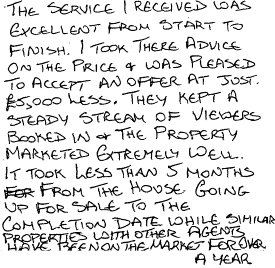 THE SERVICE I RECEIVED WAS
EXCELLENT FROM START TO
FINISH. I TOOK THERE ADVICE
ON THE PRICE & WAS PLEASED
TO ACCEPT AN OFFER AT JUST.
£5,000 LESS. THEY KEPT A
STEADY STREAM OF VIEWERS
BOOKED IN & THE PROPERTY
MARKETED EXTREMELY WELL.
IT TOOK LESS THAN 5 MONTHS
FOR FROM THE HOUSE GOING
UP FOR SALE TO THE
COMPLETION DATE WHILE SIMILAR
PROPERTIES WITH OTHER AGENTS
HAVE BEEN ON THE MARKET FOR OVER
A YEAR